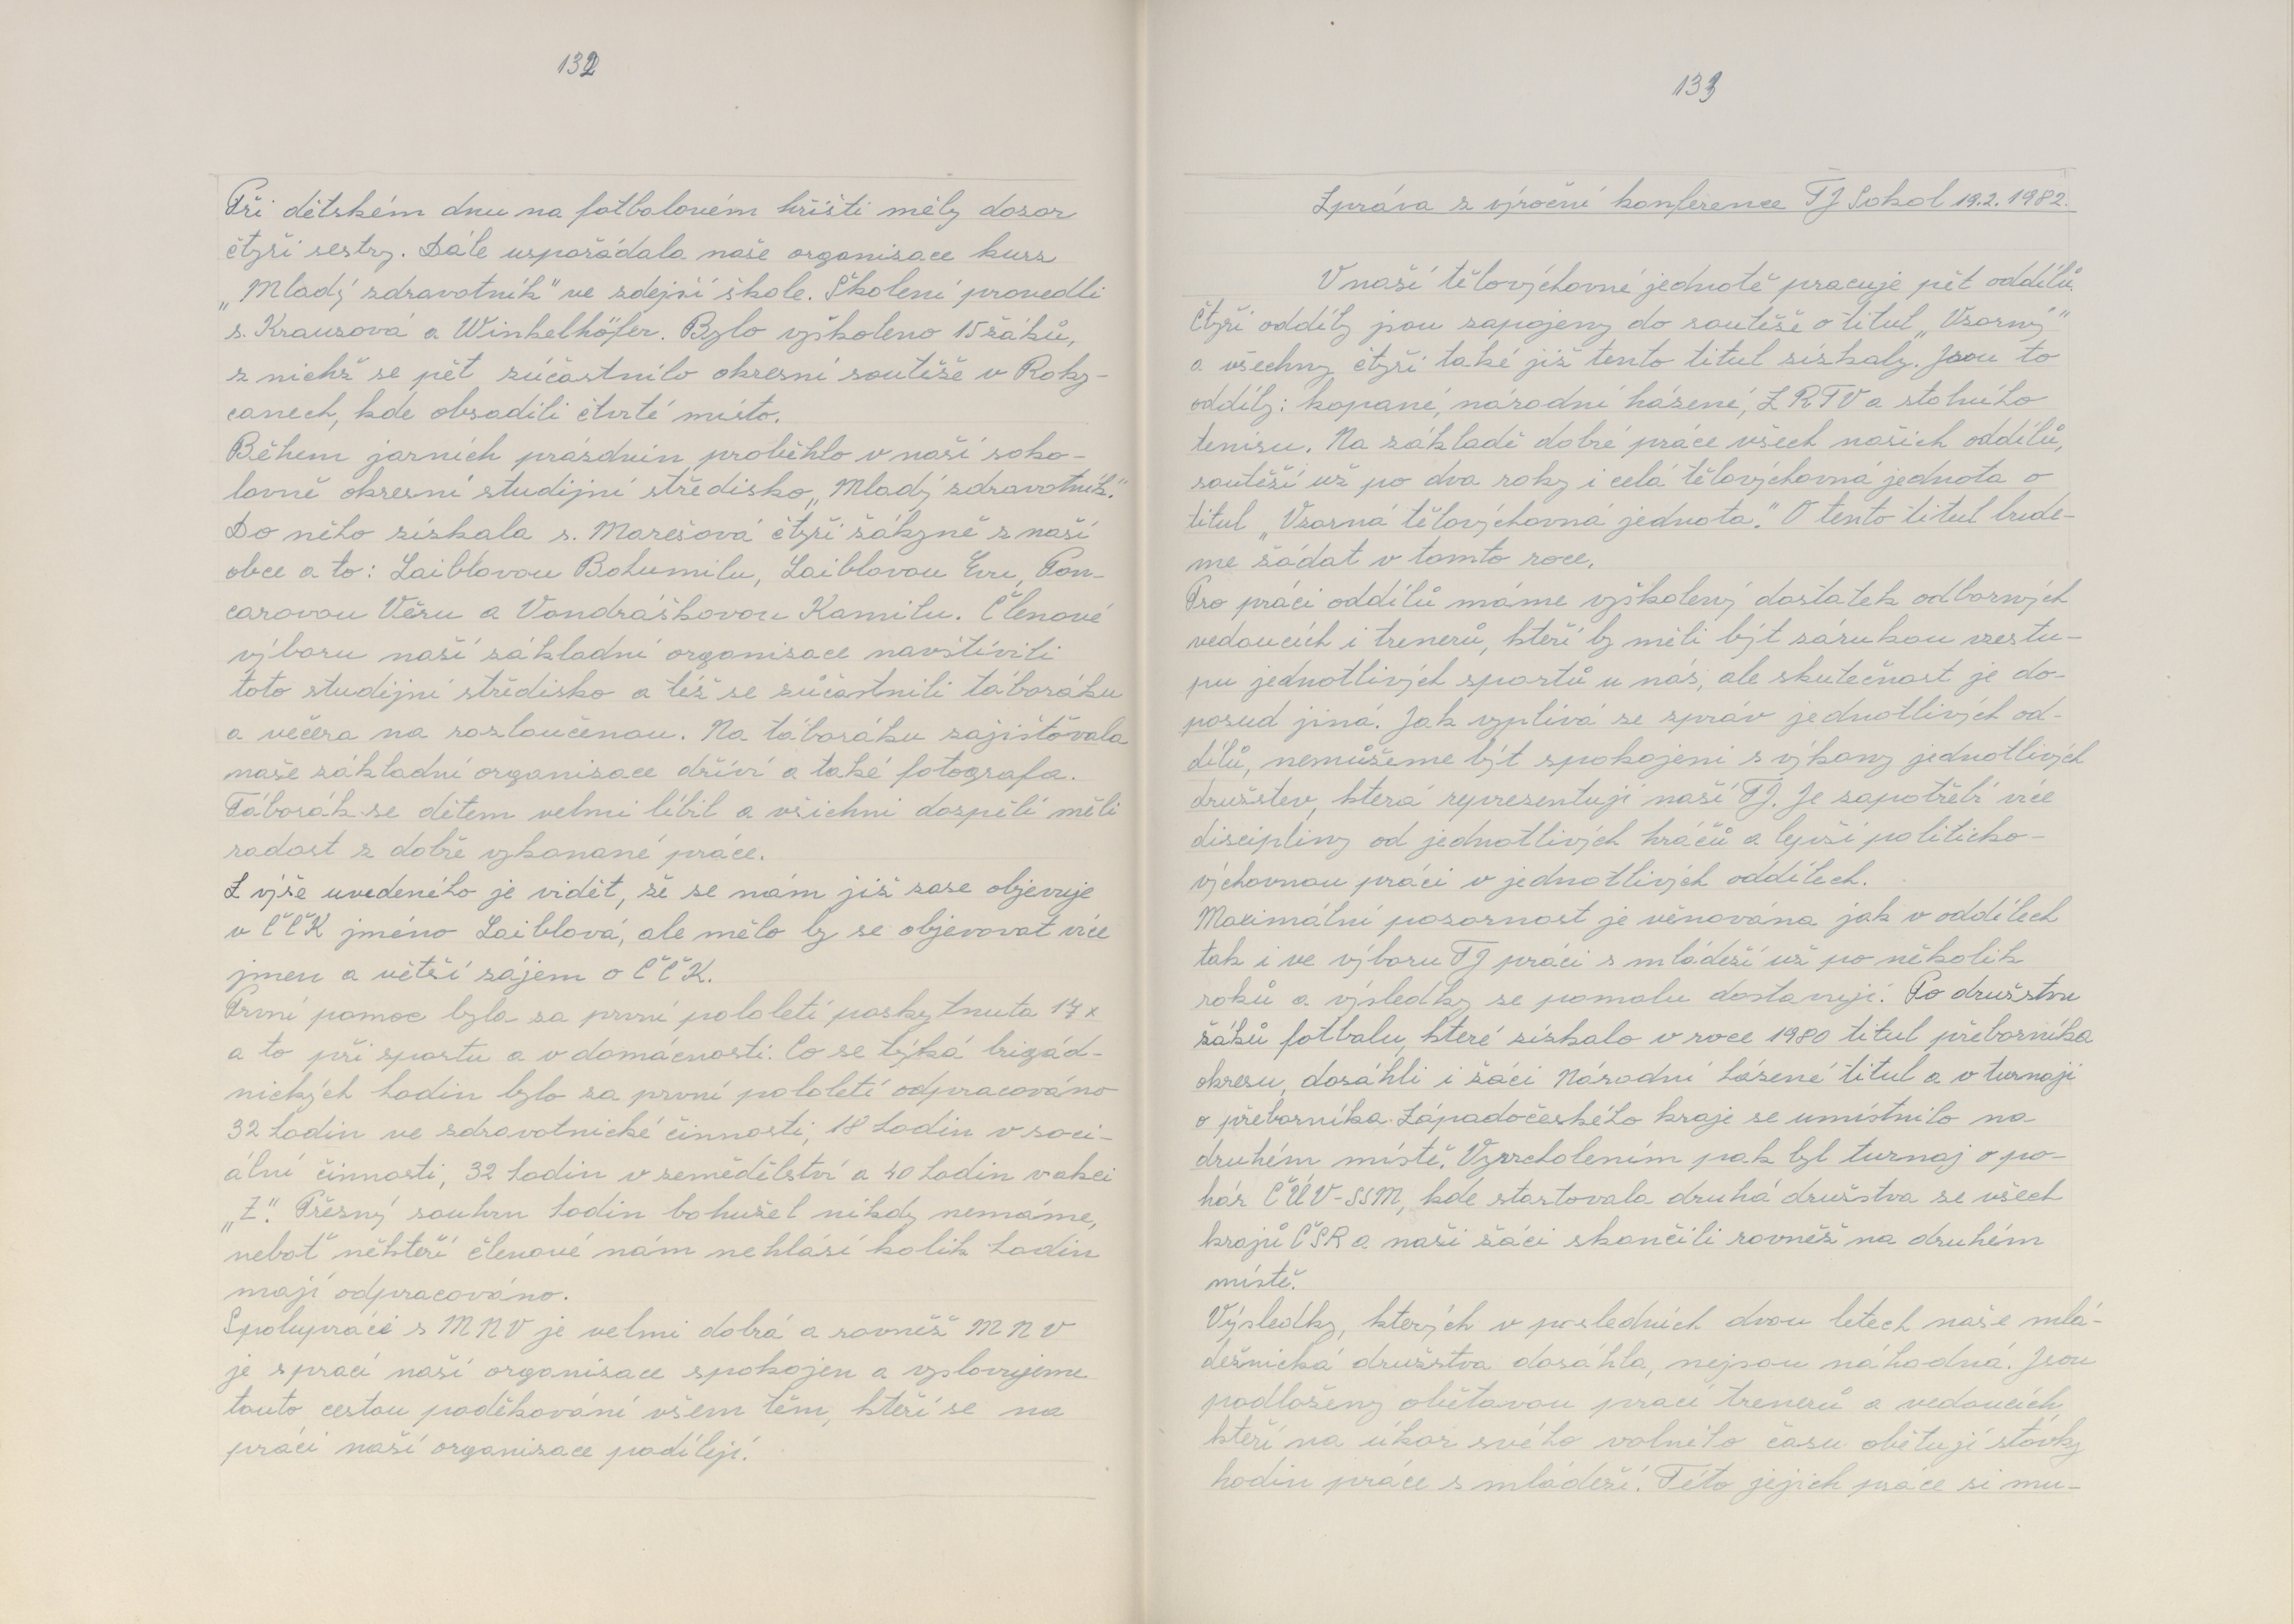 132
Při dětském dnu na fotbalovém hřišti měly dozor
čtyři sestry. Dále uspořádala naše organizace kurz
„Mladý zdravotník" ve zdejší škole. Školení provedli
s. Krausová a Winkelhöfer. Bylo vyškoleno 15 žáků,
z nichž se pět zúčastnilo okresní soutěže v Roky-
canech, kde obsadili čtvrté místo.
Během jarních prázdnin proběhlo v naší soko-
lovně okresní studijní středisko „Mladý zdravotník."
Do něho získala s. Marešová čtyři žákyně z naší
obce a to: Laiblovou Bohumilu, Laiblovou Evu, Pon-
carovou Věru a Vondráškovou Kamilu. Členové
výboru naší základní organizace navštívili
toto studijní středisko a též se zúčastnili táboráku
a večera na rozloučenou. Na táboráku zajišťovala
naše základní organizace dříví a také fotografa.
Táborák se dětem velmi líbil a všichni dospělí měli
radost z dobře vykonané práce.
Z výše uvedeného je vidět, že se nám již zase objevuje
v ČČK jméno Laiblová, ale mělo by se objevovat více
jmen a větší zájem o ČČK.
První pomoc byla za první pololetí poskytnuta 17x
a to při sportu a v domácnosti. Co se týká brigád-
nických hodin bylo za první pololetí odpracováno
32 hodin ve zdravotnické činnosti, 18 hodin v soci-
ální činnosti, 32 hodin v zemědělství a 40 hodin v akci
„Z". Přesný souhrn hodin bohužel nikdy nemáme,
neboť někteří členové nám nehlásí kolik hodin
mají odpracováno.
Spolupráce s MNV je velmi dobrá a rovněž MNV
je s prací naší organizace spokojen a vyslovujeme
touto cestou poděkování všem těm, kteří se na
práci naší organizace podílejí.
133
Zpráva z výroční konference TJ Sokol 19.2.1982.
V naší tělovýchovné jednotě pracuje pět oddílů.
Čtyři oddíly jsou zapojeny do soutěže o titul „Vzorný"
a všechny čtyři také již tento titul získaly. Jsou to
oddíly: kopané, národní házené, ZRTV a stolního
tenisu. Na základě dobré práce všech našich oddílů,
soutěží už po dva roky i celá tělovýchovná jednota o
titul „Vzorná tělovýchovná jednota." O tento titul bude-
me žádat v tomto roce.
Pro práci oddílů máme vyškolený dostatek odborných
vedoucích i trenerů, kteří by měli být zárukou vzestu-
pu jednotlivých sportů u nás, ale skutečnost je do-
posud jiná. Jak vyplívá ze zpráv jednotlivých od-
dílů, nemůžeme být spokojeni s výkony jednotlivých
družstev, která reprezentují naší TJ. Je zapotřebí více
disciplíny od jednotlivých hráčů a lepší politicko-
výchovnou práci v jednotlivých oddílech.
Maximální pozornost je věnována jak v oddílech
tak i ve výboru TJ práci s mládeží už po několik
roků a výsledky se pomalu dostavují. Po družstvu
žáků fotbalu, které získalo v roce 1980 titul přeborníka
okresu, dosáhli i žáci Národní házené titul a v turnaji
o přeborníka Západočeského kraje se umístnilo na
druhém místě. Vyvrcholením pak byl turnaj o po-
hár ČÚV-SSM, kde startovala druhá družstva se všech
krajů ČSR a naši žáci skončili rovněž na druhém
místě.
Výsledky, kterých v posledních dvou letech naše mlá-
dežnická družstva dosáhla, nejsou náhodná. Jsou
podloženy obětavou prací trenerů a vedoucích
kteří na úkor svého volného času obětují stovky
hodin práce s mládeží. Této jejich práce si mu-